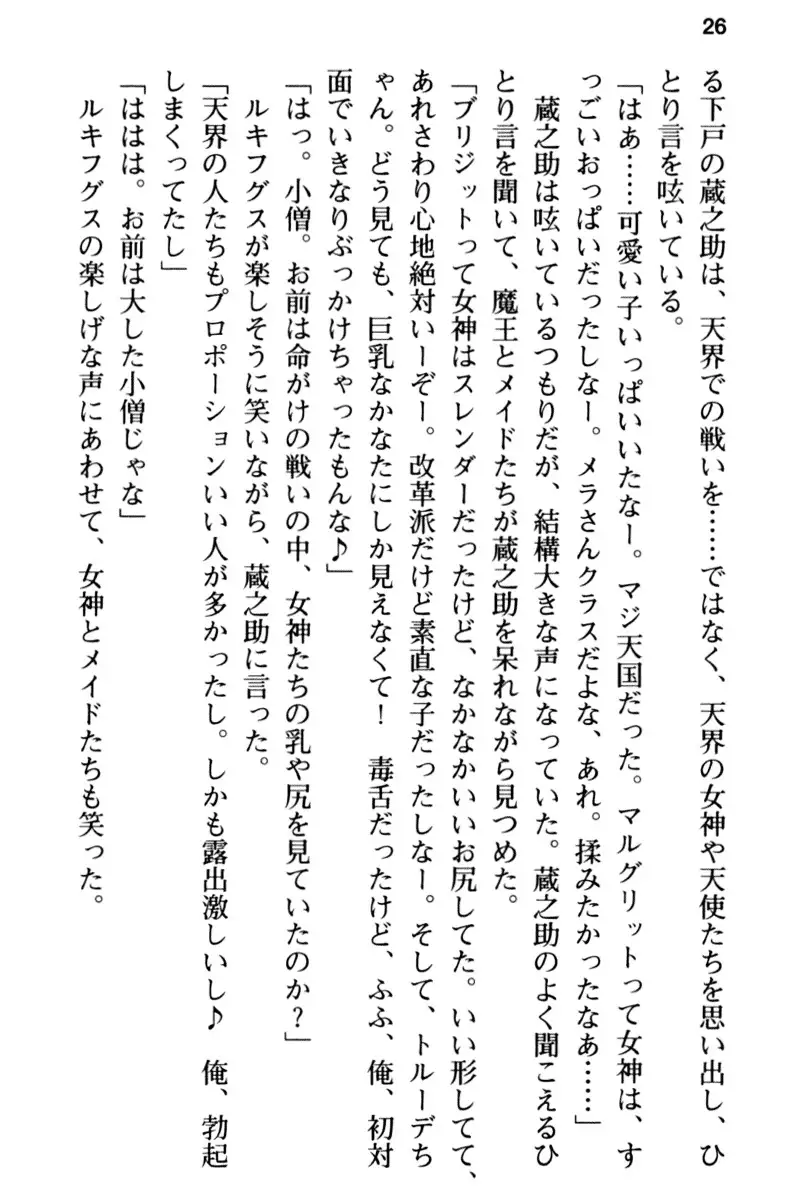 26
る下戸の蔵之助は、天界での戦いを……ではなく、天界の女神や天使たちを思い出し、ひ
とり言を呟いている。
「はぁ……可愛い子いっぱいいたなー。マジ天国だった。マルグリットって女神は、す
っごいおっぱいだったしなー。メラさんクラスだよな、あれ。揉みたかったなあ……」
蔵之助は呟いているつもりだが、結構大きな声になっていた。蔵之助のよく聞こえるひ
とり言を聞いて、魔王とメイドたちが蔵之助を呆れながら見つめた。
「ブリジットって女神はスレンダーだったけど、なかなかいいお尻してた。いい形してて、
あれさわり心地絶対いーぞー。改革派だけど素直な子だったしなー。そして、トルーデち
ゃん。どう見ても、巨乳なかなたにしか見えなくて！　毒舌だったけど、ふふ、俺、初対
面でいきなりぶっかけちゃったもんな♪」
「はっ。小僧。お前は命がけの戦いの中、女神たちの乳や尻を見ていたのか？」
ルキフグスが楽しそうに笑いながら、蔵之助に言った。
「天界の人たちもプロポーションいい人が多かったし。しかも露出激しいし♪　俺、勃起
しまくってたし」
「ははは。お前は大した小僧じゃな」
ルキフグスの楽しげな声にあわせて、女神とメイドたちも笑った。